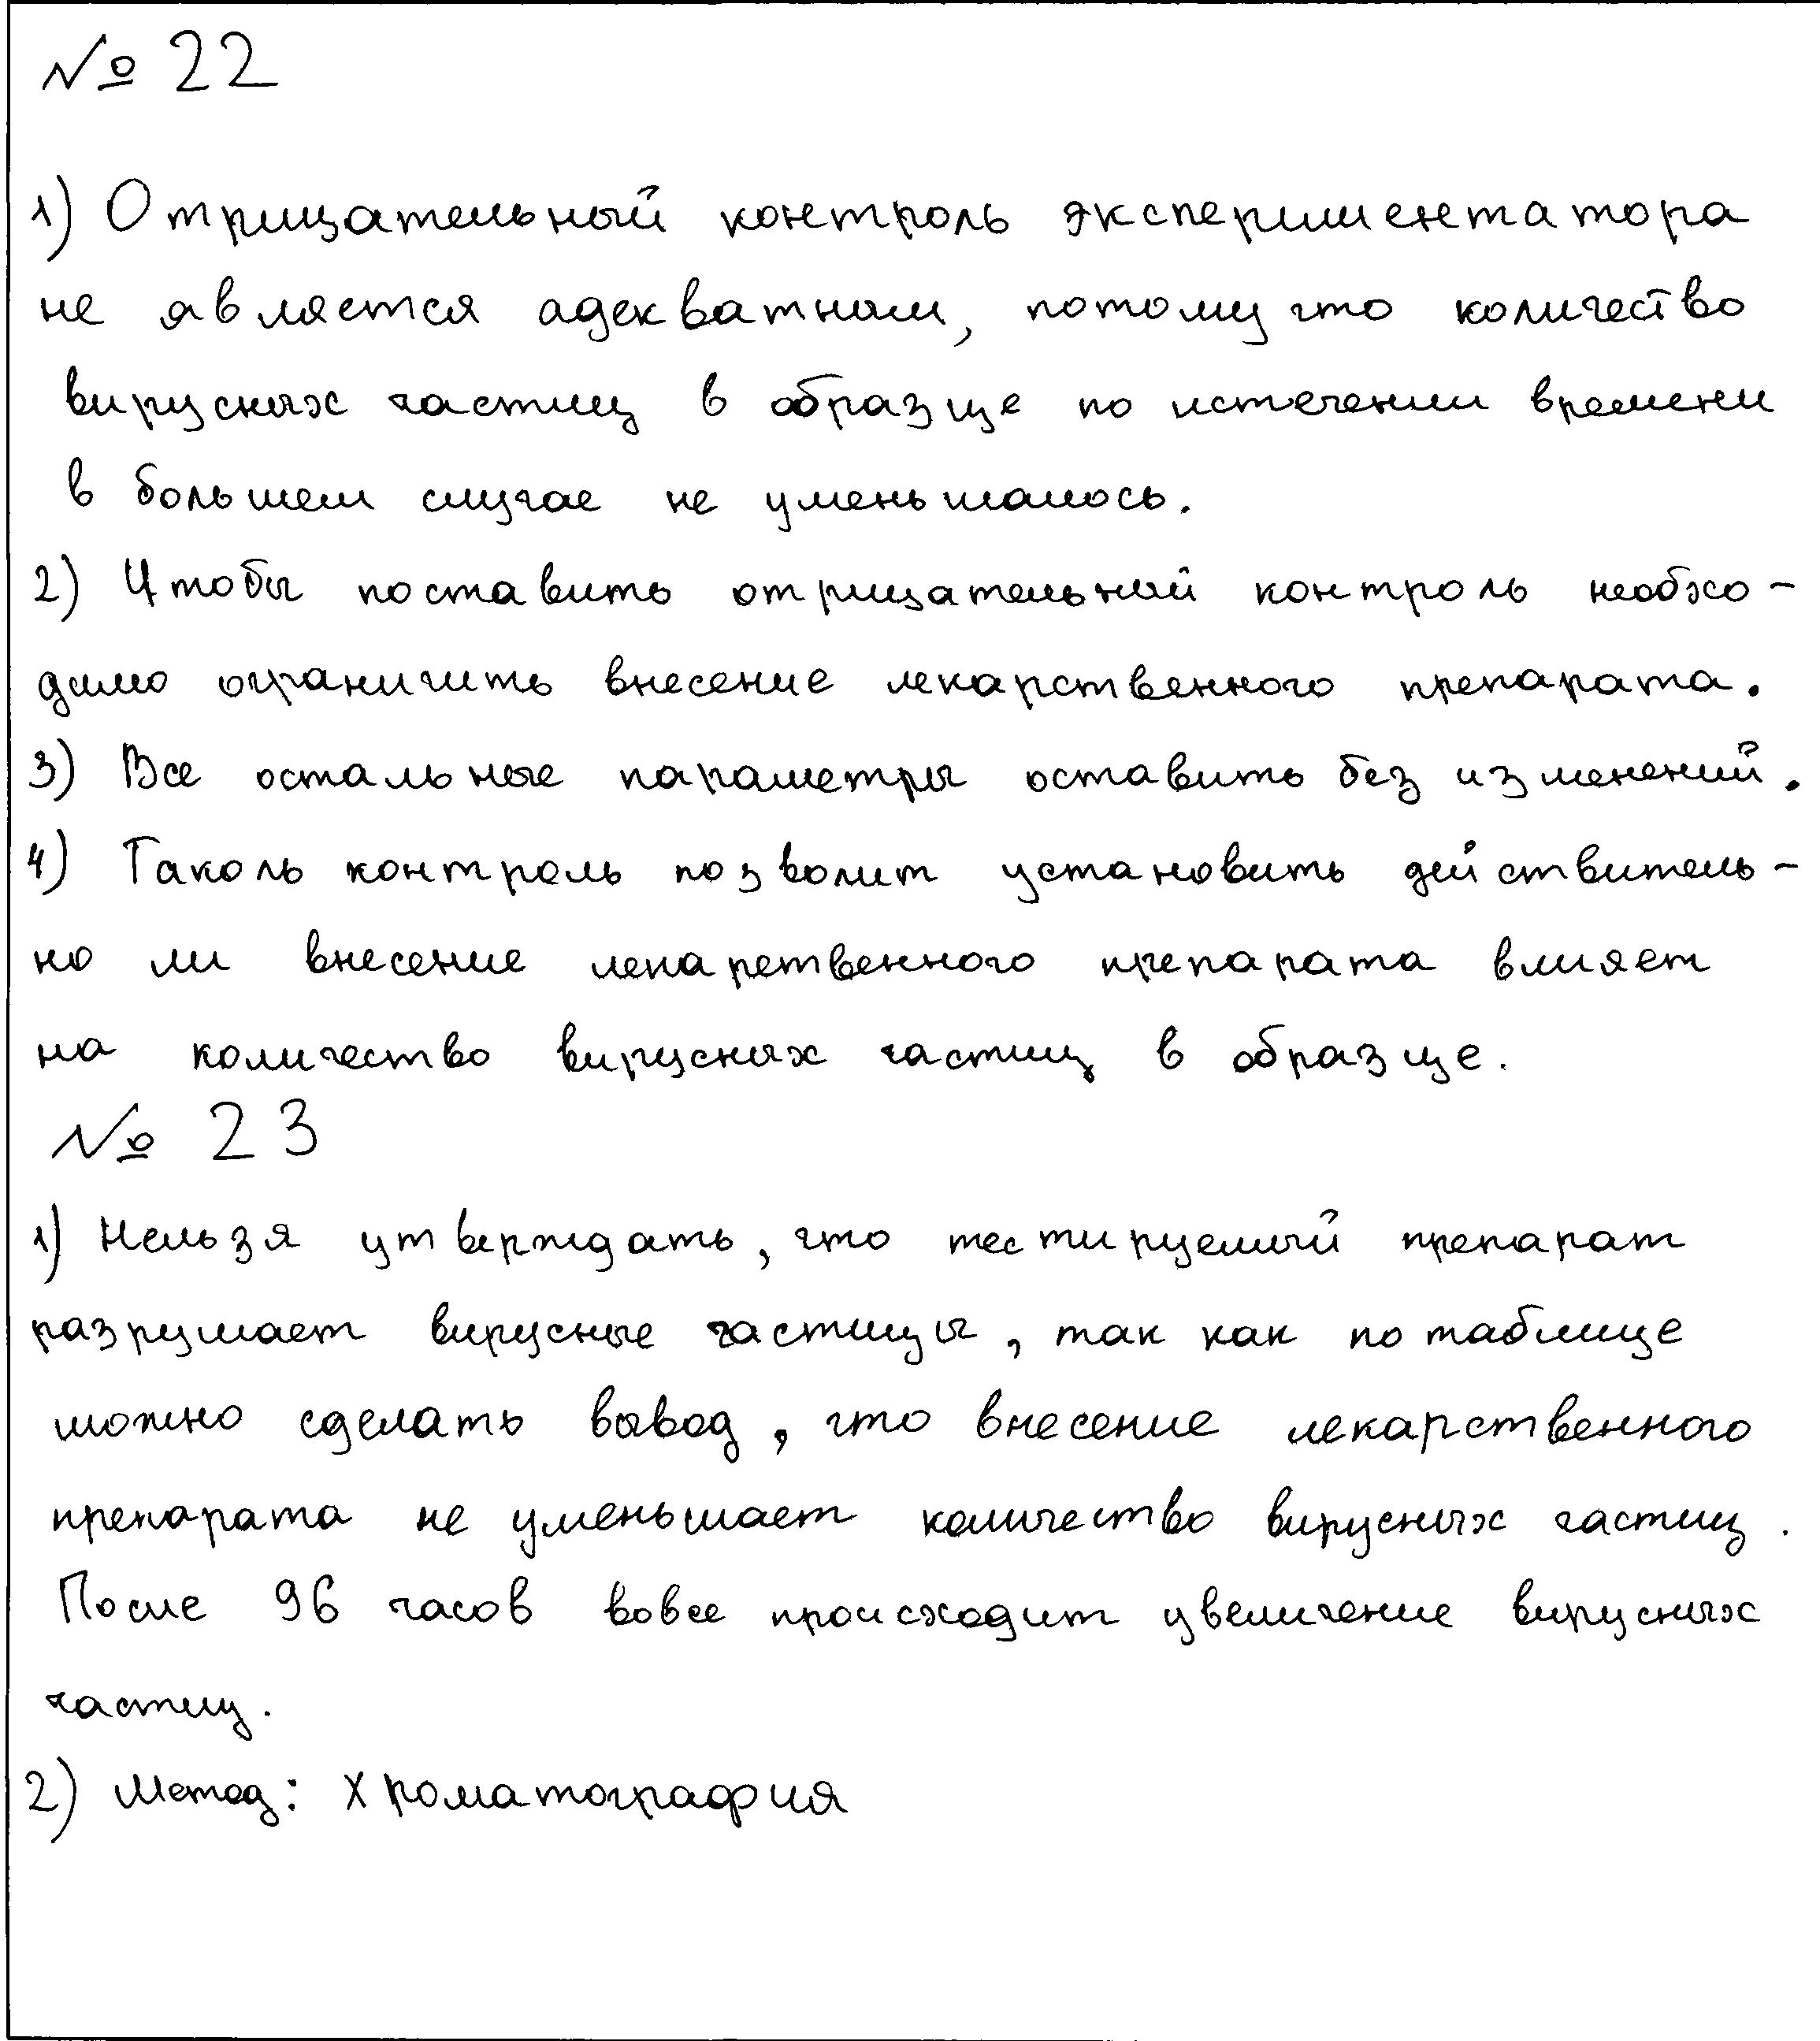 № 22
1) Отрицательный контроль экспериментатора
не является адекватным, потому что количество
вирусных частиц в образце по истечении времени
в большем случае не уменьшалось.
2) Чтобы поставить отрицательный контроль необхо-
димо ограничить внесение лекарственного препарата.
3) Все остальные параметры оставить без изменений.
4) Таколь контроль позволит установить действитель-
но ли внесение лекарственного препарата влияет
на количество вирусных частиц в образце.
№ 23
1) Нельзя утверждать, что тестируемый препарат
разрушает вирусные частицы, так как по таблице
можно сделать вывод, что внесение лекарственного
препарата не уменьшает количество вирусных частиц.
После 96 часов вовсе происходит увеличение вирусных
частиц.
2) Метод: Хроматография